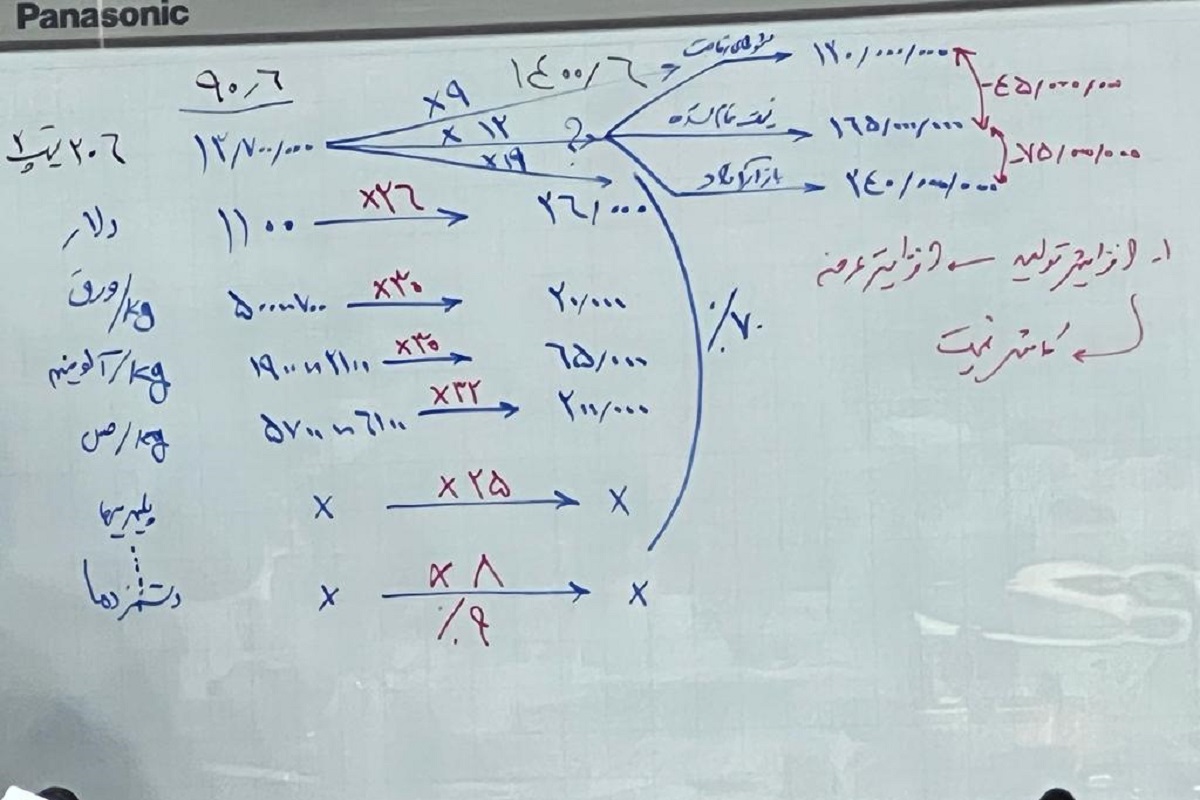 Panasonic
۹۰,۶
۱۴۰۰,۶
۲۰۶ تیپ ۲
۱۳,۷۰۰,۰۰۰
x۹
x ۱۲
x۱۹
?
۱۲۰,۰۰۰,۰۰۰
قیمت تمام شده
۱۶۵,۰۰۰,۰۰۰
بازار آزاد
۲۴۰,۰۰۰,۰۰۰
-۴۵,۰۰۰,۰۰۰
-۷۵,۰۰۰,۰۰۰
دلار ۱۱۰۰ x۲۶ ۲۶,۰۰۰
ورق/kg x۳۰ ۲۰,۰۰۰
آلومینیم/kg ۱۹۰۰ ~ ۲۱۰۰ x۳۰ ۶۵,۰۰۰
مس/kg ۵۷۰۰ ~ ۶۱۰۰ x۳۲ ۲۰۰,۰۰۰
پلیمرها x x ۲۵ x
دستمزدها x x ۸ x
٪۹
٪۷۰
۱. افزایش تولید ← افزایش عرضه
کاهش قیمت